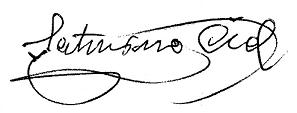 Saturnino Cid